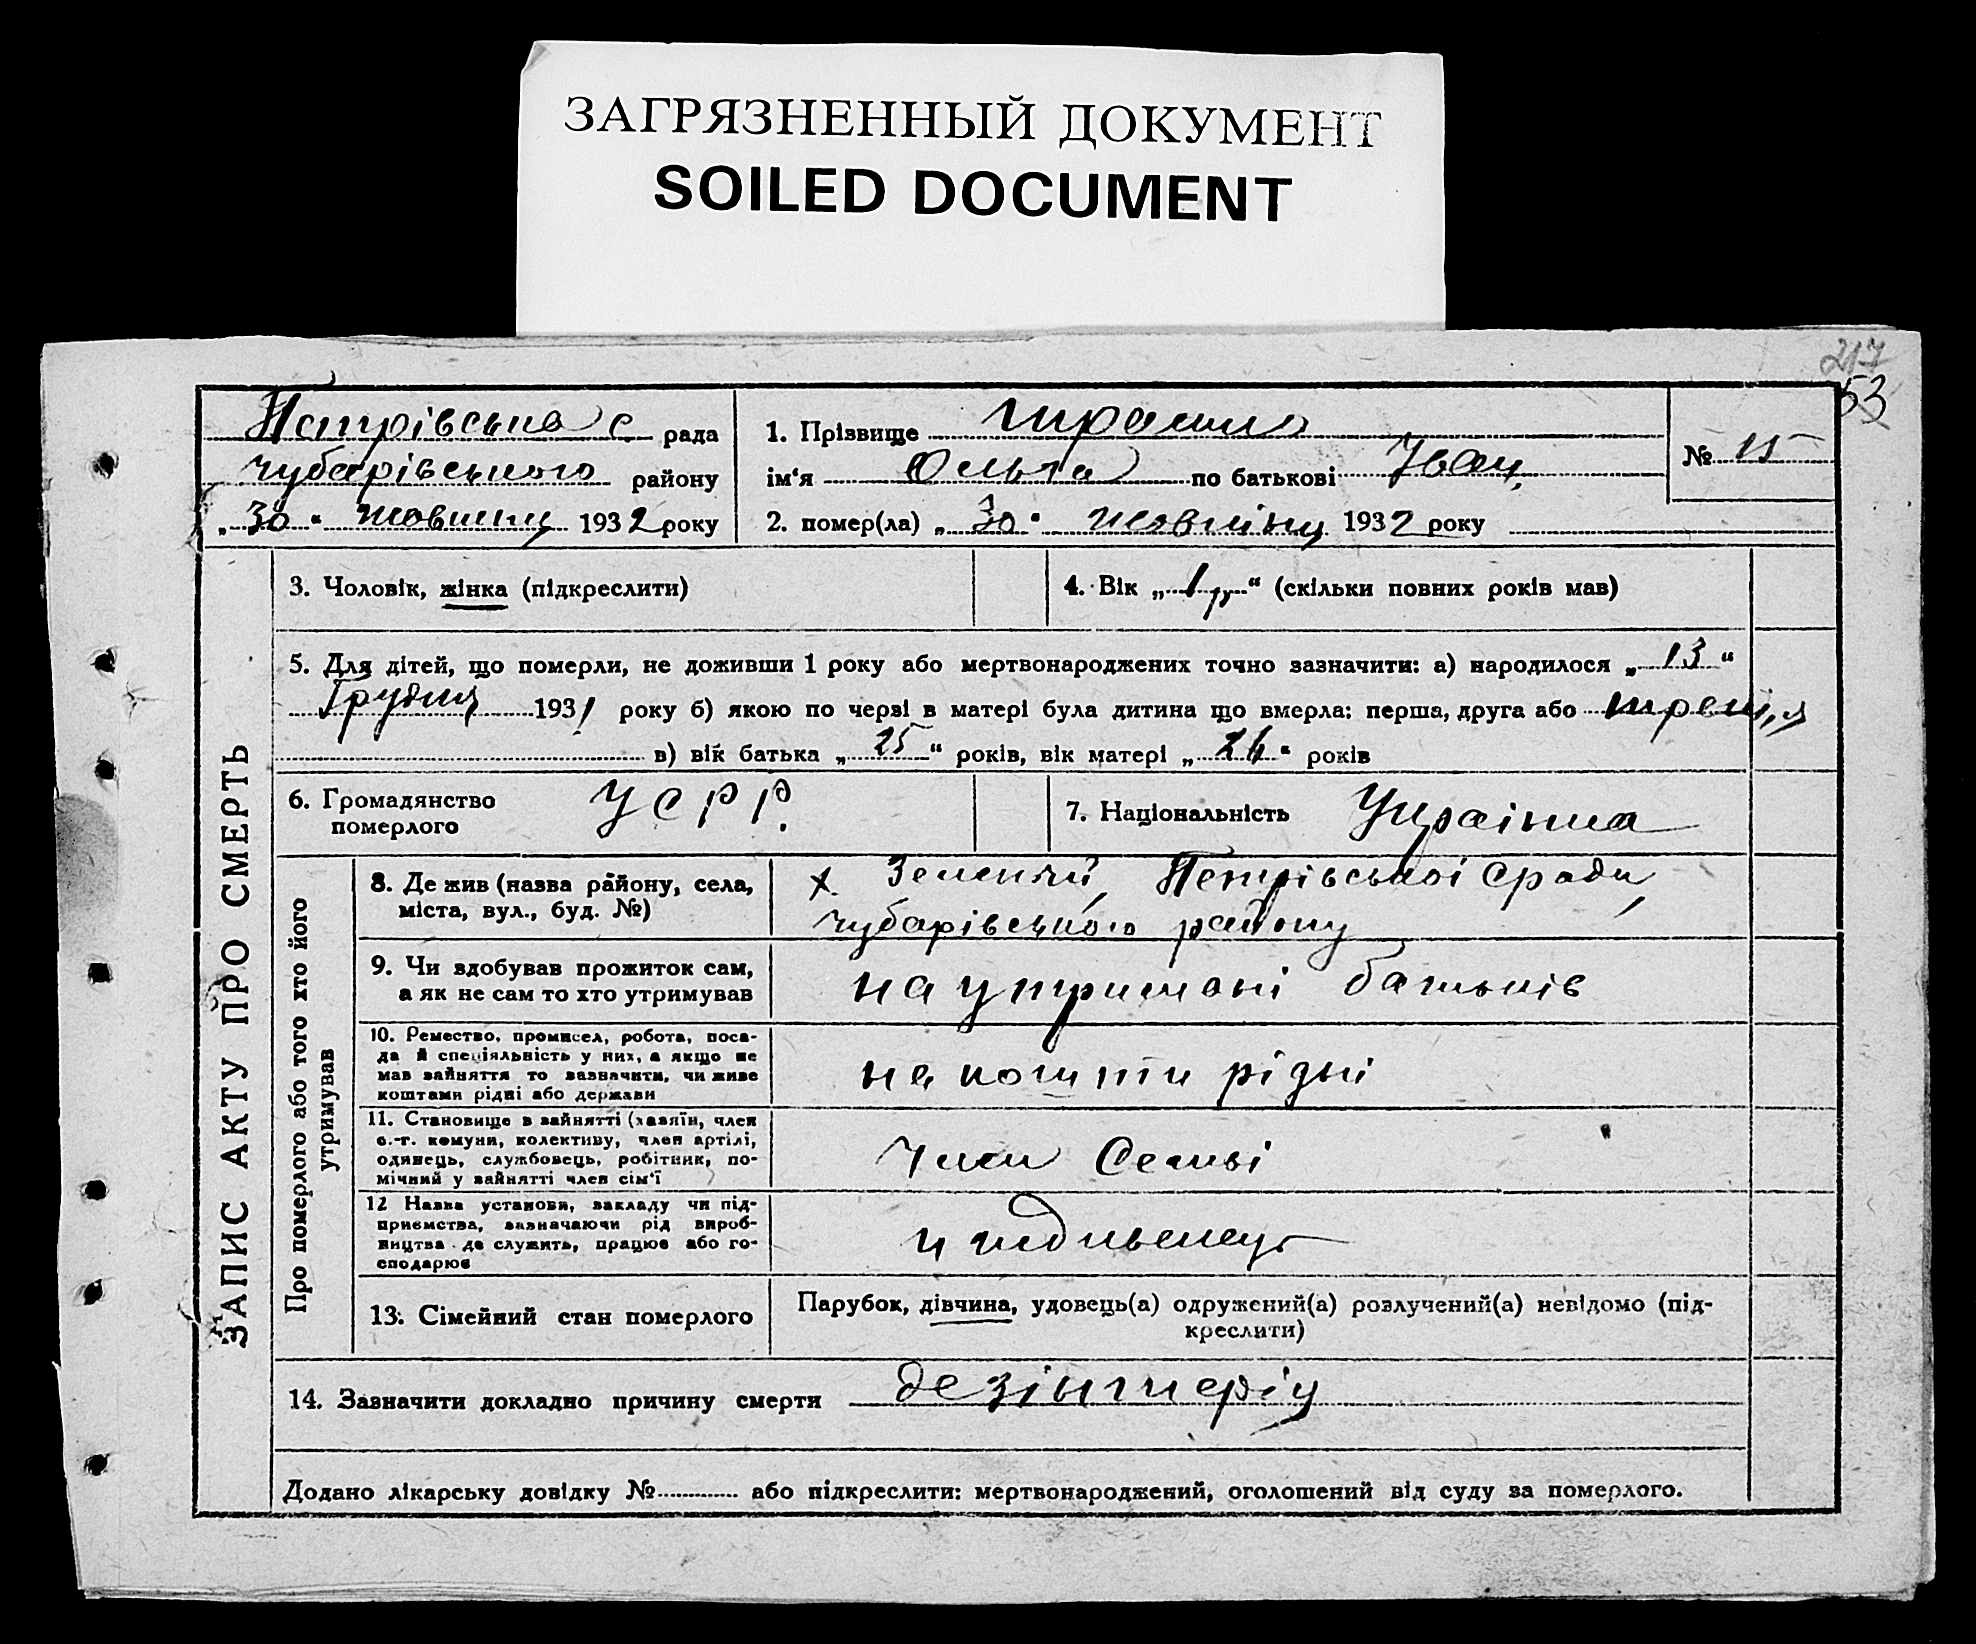 ЗАГРЯЗНЕННЫЙ ДОКУМЕНТ
SOILED DOCUMENT
217
53
Петрівська с. рада
чубарівського району
„30“ жовтня 1932 року
1. Прізвище
ім‘я Ольга по батькові Іван.
№ 15
2. помер(ла) „30“ жовтня 1932 року
ЗАПИС АКТУ ПРО СМЕРТЬ
3. Чоловік, жінка (підкреслити)
4. Вік „1 р“ (скільки повних років мав)
5. Для дітей, що померли, не доживши 1 року або мертвонароджених точно зазначити: а) народилося „13“
Грудня 1931 року б) якою по черзі в матері була дитина що вмерла: перша, друга або третія
в) вік батька „25“ років, вік матері „24“ років
6. Громадянство
померлого
УСРР.
7. Національність Українка
Про померлого або того хто його
утримував
8. Де жив (назва району, села,
міста, вул., буд. №)
х. Зелений, Петрівської с ради,
чубарівського району
9. Чи здобував прожиток сам,
а як не сам то хто утримував
на утримані батьків
10. Ремество, промисел, робота, поса-
да й спеціяльність у них, а якщо не
мав зайняття то зазначити, чи живе
коштами рідні або держави
на кошти рідні
11. Становище в зайнятті (хазяїн, член
с.-г. комуни, колективу, член артілі,
одинець, службовець, робітник, по-
мічний у зайнятті член сім‘ї
Член Семьі
12 Назва установи, закладу чи під-
приємства, зазначаючи рід вироб-
ництва де служить, працює або го-
сподарює
13. Сімейний стан померлого
Парубок, дівчина, удовець(а) одружений(а) розлучений(а) невідомо (під-
креслити)
14. Зазначити докладно причину смерти дезінтерія
Додано лікарську довідку № або підкреслити: мертвонароджений, оголошений від суду за померлого.